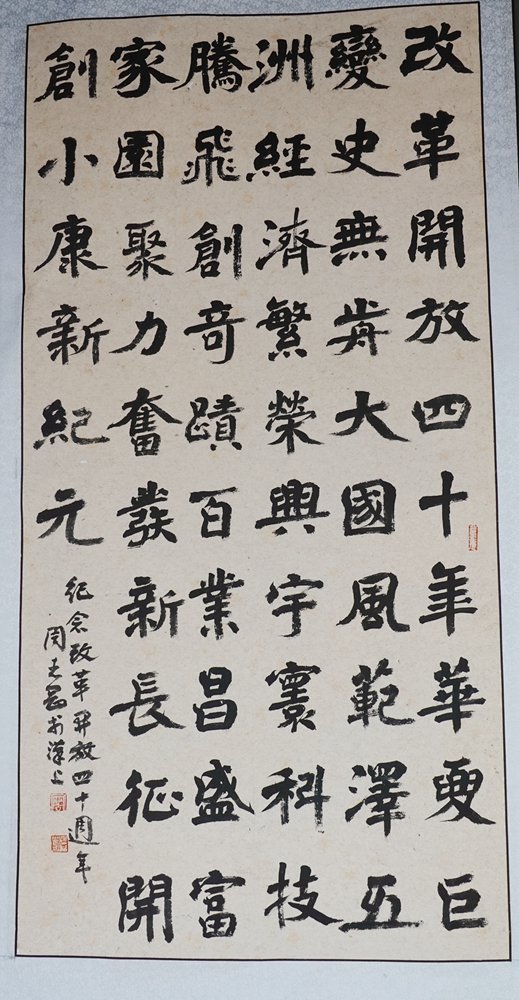 改革開放四十年華夏巨
變史無歬大國風範澤五
洲經濟繁榮興宇寰科技
騰飛創奇蹟百業昌盛富
家園聚力奮發新長征開
創小康新紀元
紀念改革開放四十週年
周